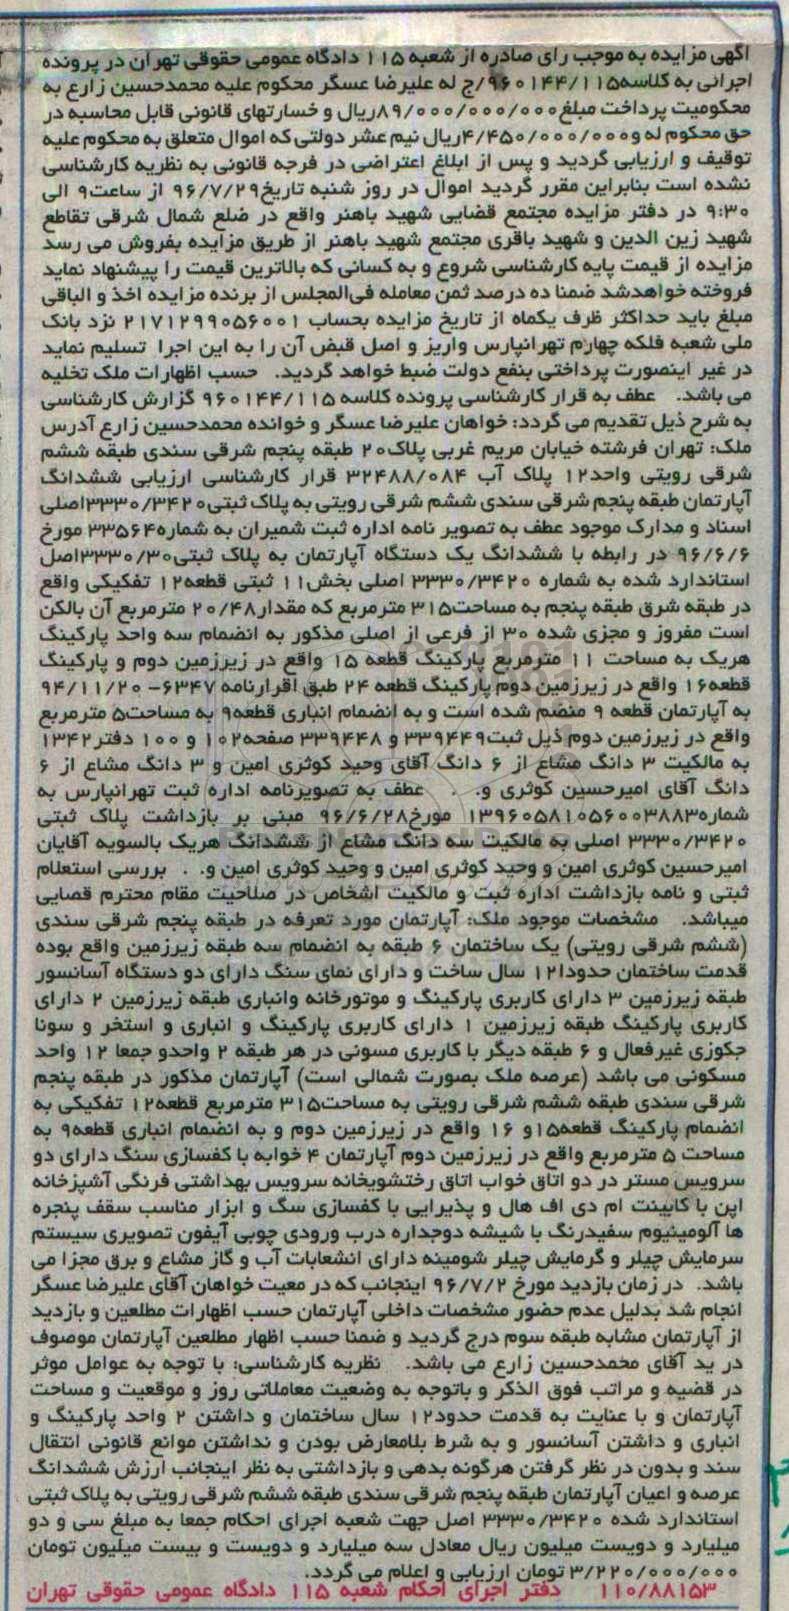 آگهی مزایده به موجب رای صادره از شعبه ۱۱۵ دادگاه عمومی حقوقی تهران در پرونده
اجرائی به کلاسه۹۶۰۱۴۴/۱۱۵/ج له علیرضا عسگر محکوم علیه محمدحسین زارع به
محکومیت پرداخت مبلغ۸۹/۰۰۰/۰۰۰/۰۰۰ریال و خسارتهای قانونی قابل محاسبه در
حق محکوم له و۴/۴۵۰/۰۰۰/۰۰۰ریال نیم عشر دولتی که اموال متعلق به محکوم علیه
توقیف و ارزیابی گردید و پس از ابلاغ اعتراضی در فرجه قانونی به نظریه کارشناسی
نشده است بنابراین مقرر گردید اموال در روز شنبه تاریخ۹۶/۷/۲۹ از ساعت۹ الی
۹:۳۰ در دفتر مزایده مجتمع قضایی شهید باهنر واقع در ضلع شمال شرقی تقاطع
شهید زین الدین و شهید باقری مجتمع شهید باهنر از طریق مزایده بفروش می رسد
مزایده از قیمت پایه کارشناسی شروع و به کسانی که بالاترین قیمت را پیشنهاد نماید
فروخته خواهدشد ضمنا ده درصد ثمن معامله فی‌المجلس از برنده مزایده اخذ و الباقی
مبلغ باید حداکثر ظرف یکماه از تاریخ مزایده بحساب ۲۱۷۱۲۹۹۰۵۶۰۰۱ نزد بانک
ملی شعبه فلکه چهارم تهرانپارس واریز و اصل قبض آن را به این اجرا تسلیم نماید
در غیر اینصورت پرداختی بنفع دولت ضبط خواهد گردید. حسب اظهارات ملک تخلیه
می باشد. عطف به قرار کارشناسی پرونده کلاسه ۹۶۰۱۴۴/۱۱۵ گزارش کارشناسی
به شرح ذیل تقدیم می گردد: خواهان علیرضا عسگر و خوانده محمدحسین زارع آدرس
ملک: تهران فرشته خیابان مریم غربی پلاک۲۰ طبقه پنجم شرقی سندی طبقه ششم
شرقی رویتی واحد۱۲ پلاک آب ۳۲۴۸۸/۰۸۴ قرار کارشناسی ارزیابی ششدانگ
آپارتمان طبقه پنجم شرقی سندی ششم شرقی رویتی به پلاک ثبتی۳۳۳۰/۳۴۲۰اصلی
اسناد و مدارک موجود عطف به تصویر نامه اداره ثبت شمیران به شماره۳۳۵۶۴ مورخ
۹۶/۶/۶ در رابطه با ششدانگ یک دستگاه آپارتمان به پلاک ثبتی۳۳۳۰/۳۰اصل
استاندارد شده به شماره ۳۳۳۰/۳۴۲۰ اصلی بخش۱۱ ثبتی قطعه۱۲ تفکیکی واقع
در طبقه شرق طبقه پنجم به مساحت۳۱۵ مترمربع که مقدار۲۰/۴۸ مترمربع آن بالکن
است مفروز و مجزی شده ۳۰ از فرعی از اصلی مذکور به انضمام سه واحد پارکینگ
هریک به مساحت ۱۱ مترمربع پارکینگ قطعه ۱۵ واقع در زیرزمین دوم و پارکینگ
قطعه۱۶ واقع در زیرزمین دوم پارکینگ قطعه ۲۴ طبق اقرارنامه ۶۳۴۷– ۹۴/۱۱/۲۰
به آپارتمان قطعه ۹ منضم شده است و به انضمام انباری قطعه۹ به مساحت۵ مترمربع
واقع در زیرزمین دوم ذیل ثبت۳۳۹۴۴۹ و ۳۳۹۴۴۸ صفحه۱۰۲ و ۱۰۰ دفتر۱۳۴۲
به مالکیت ۳ دانگ مشاع از ۶ دانگ آقای وحید کوثری امین و ۳ دانگ مشاع از ۶
دانگ آقای امیرحسین کوثری و. . عطف به تصویرنامه اداره ثبت تهرانپارس به
شماره۱۳۹۶۰۵۸۱۰۵۶۰۰۳۸۸۳ مورخ۹۶/۶/۲۸ مبنی بر بازداشت پلاک ثبتی
۳۳۳۰/۳۴۲۰ اصلی به مالکیت سه دانگ مشاع از ششدانگ هریک بالسویه آقایان
امیرحسین کوثری امین و وحید کوثری امین و وحید کوثری امین و. . بررسی استعلام
ثبتی و نامه بازداشت اداره ثبت و مالکیت اشخاص در صلاحیت مقام محترم قضایی
میباشد. مشخصات موجود ملک: آپارتمان مورد تعرفه در طبقه پنجم شرقی سندی
(ششم شرقی رویتی) یک ساختمان ۶ طبقه به انضمام سه طبقه زیرزمین واقع بوده
قدمت ساختمان حدودا۱۲ سال ساخت و دارای نمای سنگ دارای دو دستگاه آسانسور
طبقه زیرزمین ۳ دارای کاربری پارکینگ و موتورخانه وانباری طبقه زیرزمین ۲ دارای
کاربری پارکینگ طبقه زیرزمین ۱ دارای کاربری پارکینگ و انباری و استخر و سونا
جکوزی غیرفعال و ۶ طبقه دیگر با کاربری مسونی در هر طبقه ۲ واحدو جمعا ۱۲ واحد
مسکونی می باشد (عرصه ملک بصورت شمالی است) آپارتمان مذکور در طبقه پنجم
شرقی سندی طبقه ششم شرقی رویتی به مساحت۳۱۵ مترمربع قطعه۱۲ تفکیکی به
انضمام پارکینگ قطعه۱۵و ۱۶ واقع در زیرزمین دوم و به انضمام انباری قطعه۹ به
مساحت ۵ مترمربع واقع در زیرزمین دوم آپارتمان ۴ خوابه با کفسازی سنگ دارای دو
سرویس مستر در دو اتاق خواب اتاق رختشویخانه سرویس بهداشتی فرنگی آشپزخانه
اپن با کابینت ام دی اف هال و پذیرایی با کفسازی سگ و ابزار مناسب سقف پنجره
ها آلومینیوم سفیدرنگ با شیشه دوجداره درب ورودی چوبی آیفون تصویری سیستم
سرمایش چیلر و گرمایش چیلر شومینه دارای انشعابات آب و گاز مشاع و برق مجزا می
باشد. در زمان بازدید مورخ ۹۶/۷/۲ اینجانب که در معیت خواهان آقای علیرضا عسگر
انجام شد بدلیل عدم حضور مشخصات داخلی آپارتمان حسب اظهارات مطلعین و بازدید
از آپارتمان مشابه طبقه سوم درج گردید و ضمنا حسب اظهار مطلعین آپارتمان موصوف
در ید آقای محمدحسین زارع می باشد. نظریه کارشناسی: با توجه به عوامل موثر
در قضیه و مراتب فوق الذکر و باتوجه به وضعیت معاملاتی روز و موقعیت و مساحت
آپارتمان و با عنایت به قدمت حدود۱۲ سال ساختمان و داشتن ۲ واحد پارکینگ و
انباری و داشتن آسانسور و به شرط بلامعارض بودن و نداشتن موانع قانونی انتقال
سند و بدون در نظر گرفتن هرگونه بدهی و بازداشتی به نظر اینجانب ارزش ششدانگ
عرصه و اعیان آپارتمان طبقه پنجم شرقی سندی طبقه ششم شرقی رویتی به پلاک ثبتی
استاندارد شده ۳۳۳۰/۳۴۲۰ اصل جهت شعبه اجرای احکام جمعا به مبلغ سی و دو
میلیارد و دویست میلیون ریال معادل سه میلیارد و دویست و بیست میلیون تومان
۳/۲۲۰/۰۰۰/۰۰۰ تومان ارزیابی و اعلام می گردد.
۱۱۰/۸۸۱۵۳ دفتر اجرای احکام شعبه ۱۱۵ دادگاه عمومی حقوقی تهران